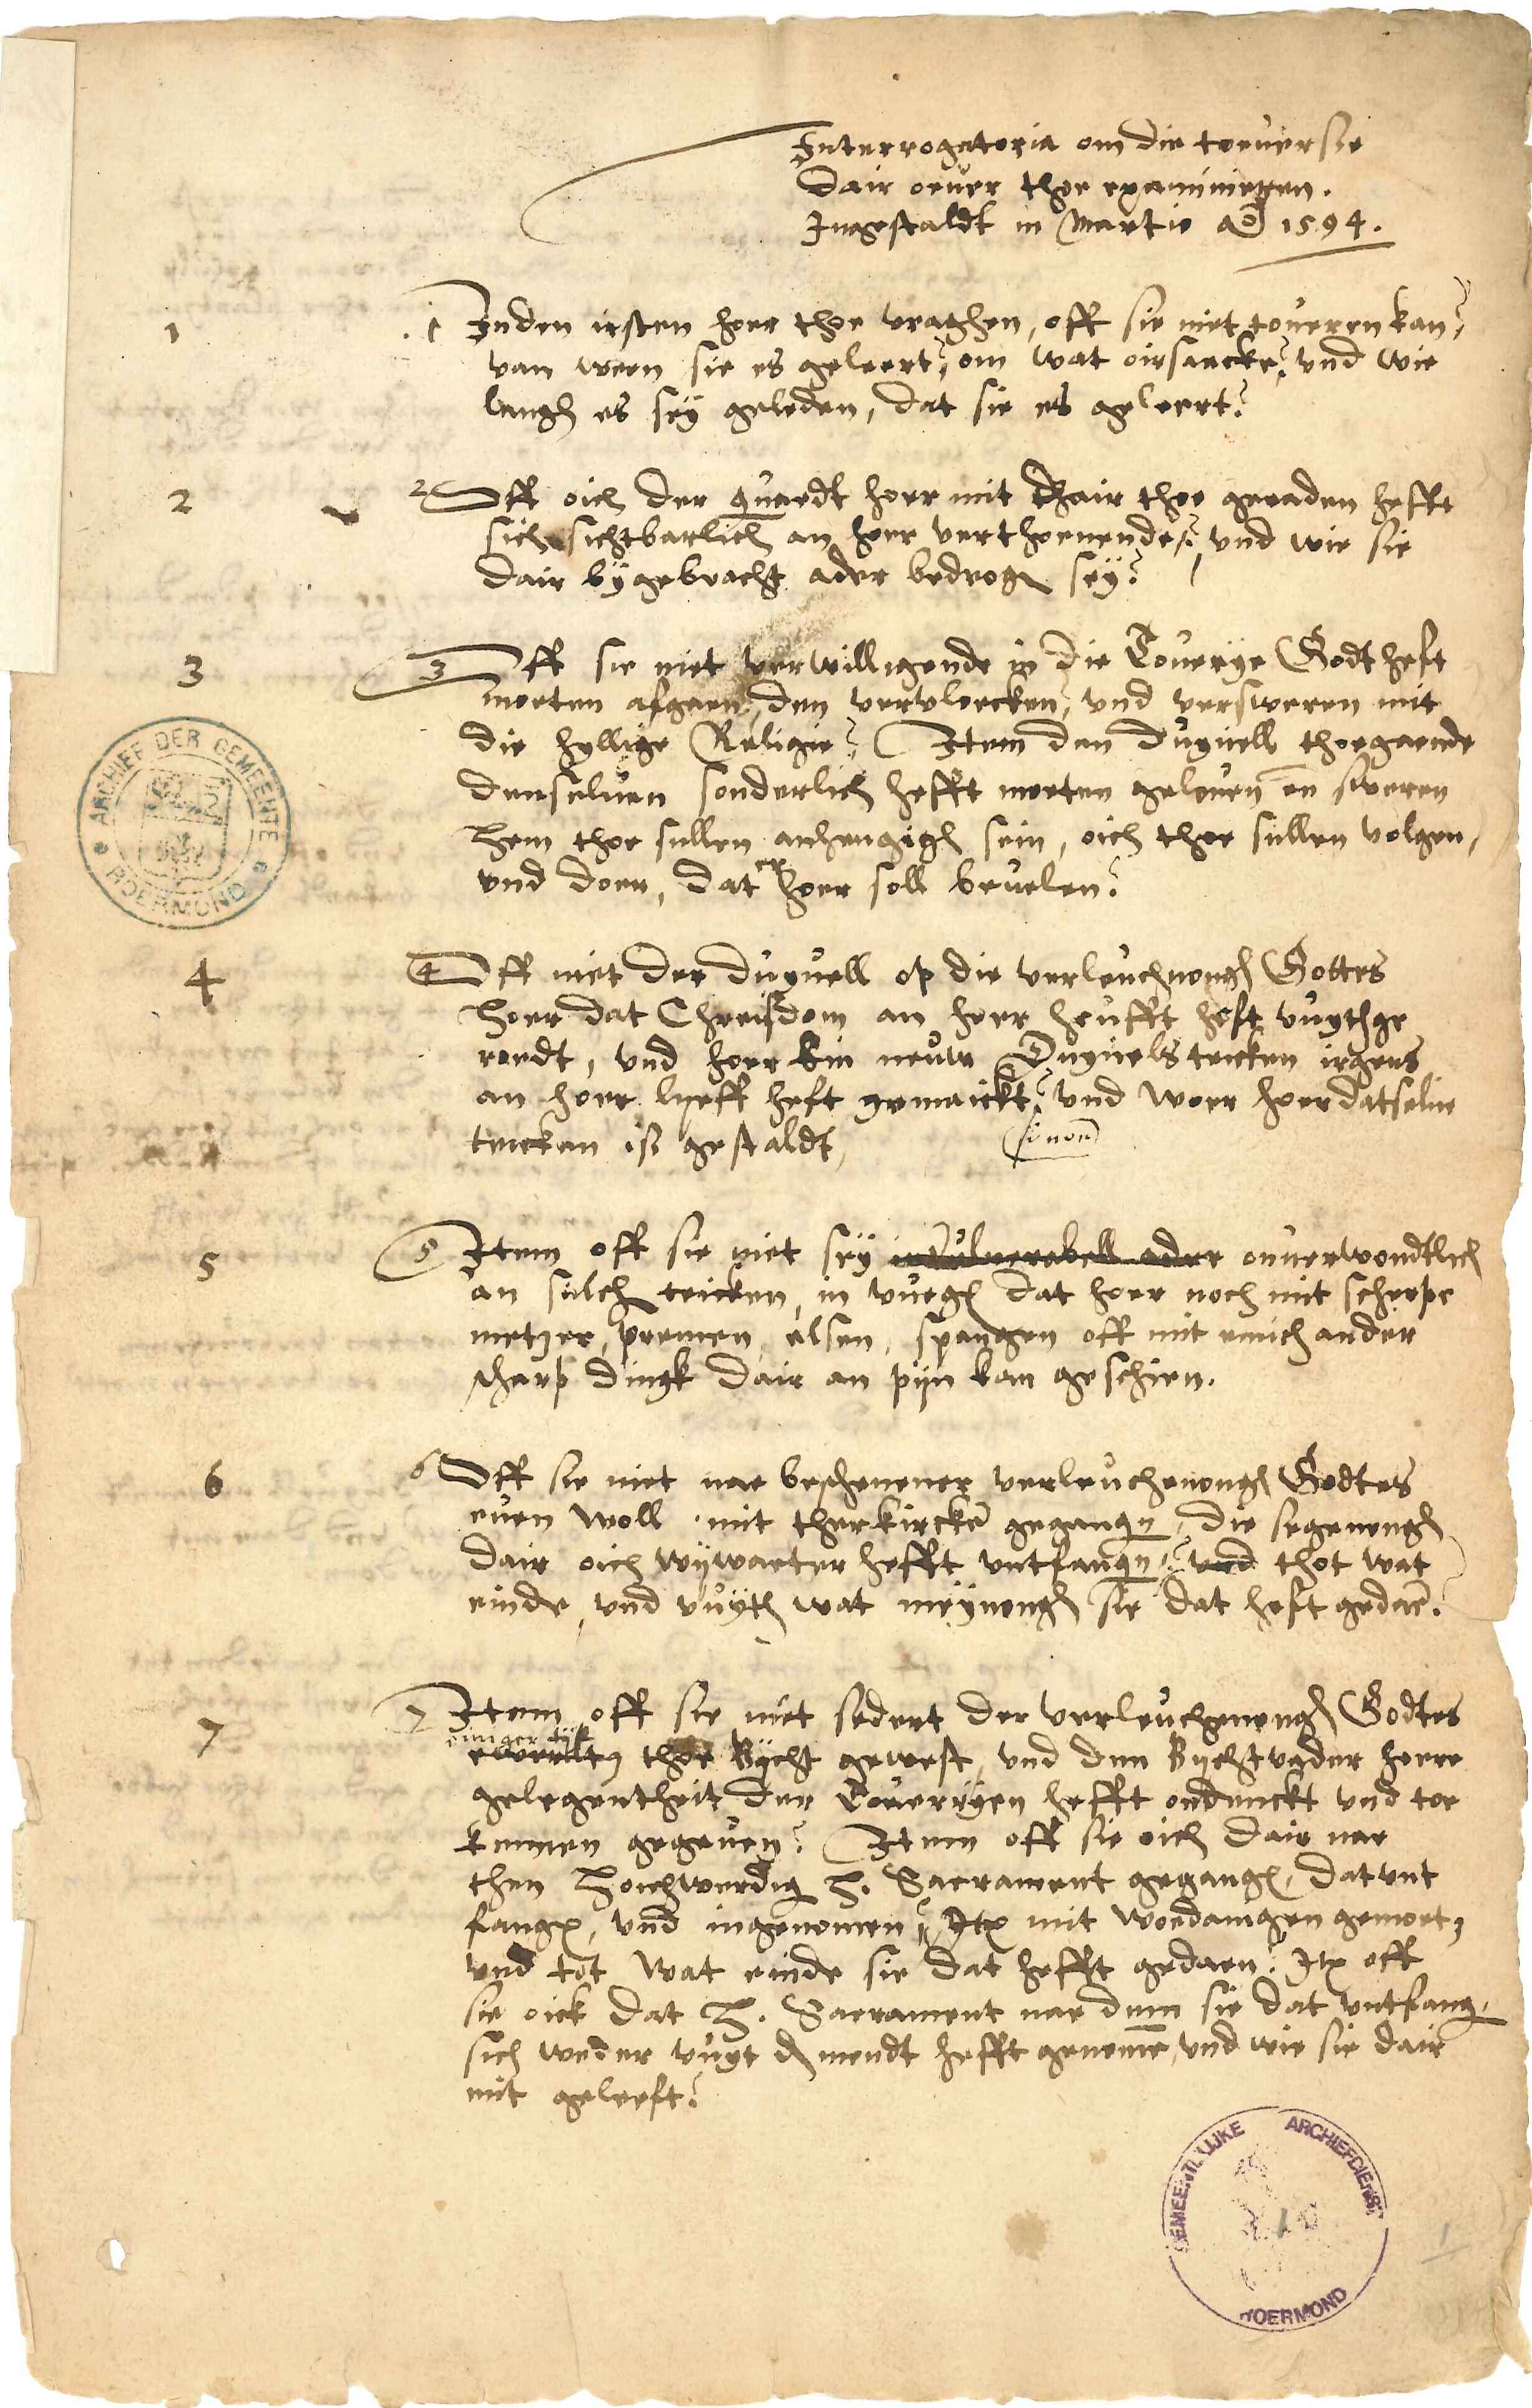 Interrogatoria om die toeuersie
dair oeuer thoe examinieren.
Ingestaldt in Martio Ao 1594.
1 1 Inden irsten hoer thoe vraghen, off sie niet toueren kan?
van ween sie es geleert? om wat oirsaecke? vnd wie
langh es sey geleden, dat sie es geleert?
2 2 Off oich der quaedt hoer mit thair thoe geraden hefft
sich sichtbarlich an hoer verthoenende? vnd wie sie
dair by gebracht ader bedrogen sey?
3 3 Off sie niet verwilligende in die Touerye Godt heft
moeten afgaen, den vervloecken, vnd versweren mit
die hyllige Religie? Item den duyuell thoegaende
denseluen sonderlich hefft moeten gelouen en sweren
Hem thoe sullen anhengigh sein, oich thoe sullen volgen,
vnd doen, dat er hoer soll beuelen?
4 4 Off niet der duyuell op die verleuchnongh Gottes
hoer dat Chreisdom an hoer heufft heft vuythge
roedt, vnd hoer ein neuw Duyuels teicken irgens
an hoer lyeff heft gemaickt? vnd woer hoer datselue
teicken is gestaldt,
si non
5 5 Item off sie niet sey invulnerabell ader onuerwondtlich
an sulch teicken, in vuegh dat hoer noch mit scherpe
metzer, premen, elsen, spangen off mit einich ander
scharp dingk dair an pijn kan geschien.
6 6 Off sie niet nae beschenener verleuchenongh Godtes
euen woll mit ther kircke gegangen, die segenongh
dair oich wywaeter hefft vntfangen? vnd thot wat
einde, vnd vuyth wat meynongh sie dat heft gedaen?
7 7 Item off sie niet sedert der verleuchenongh Godtes
einiger tijt
thoe Bycht gewest, vnd den Bychtvader hoere
gelegentheit der Touerryen hefft ondeckt vnd toe
kennen gegeuen? Item off sie oich dair nae
then Hoichwerdig H. Sacrament gegangen, dat vnt
fangen, vnd ingenomen? Itm mit woedanigen gemoet,
vnd tot wat einde sie dat hefft gedaen? Itm off
sie oick dat H. Sacrament nae dem sie dat vntfangen
sich weder vuyt den mondt hefft genomen, vnd wie sie dair
mit geleeft?
ARCHIEF DER GEMEENTE ROERMOND
GEMEENTELIJKE ARCHIEFDIENST ROERMOND
1